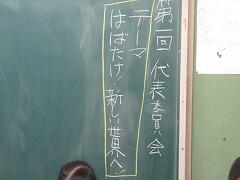 第一回 代表委員会
テーマ
はばたけ!新しい世界へ!